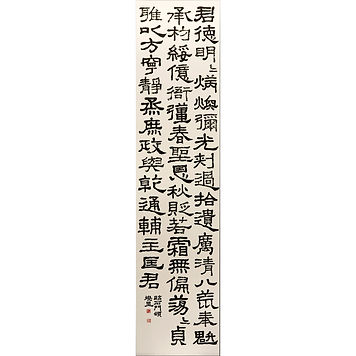 君德明〻炳煥彌光刺過拾遺厲清八荒奉魁
承杓綏億衙彊春聖恩秋貶若霜無偏蕩〻貞
雅以方寧靜烝庶政與乾通輔主匡君
臨石門頌